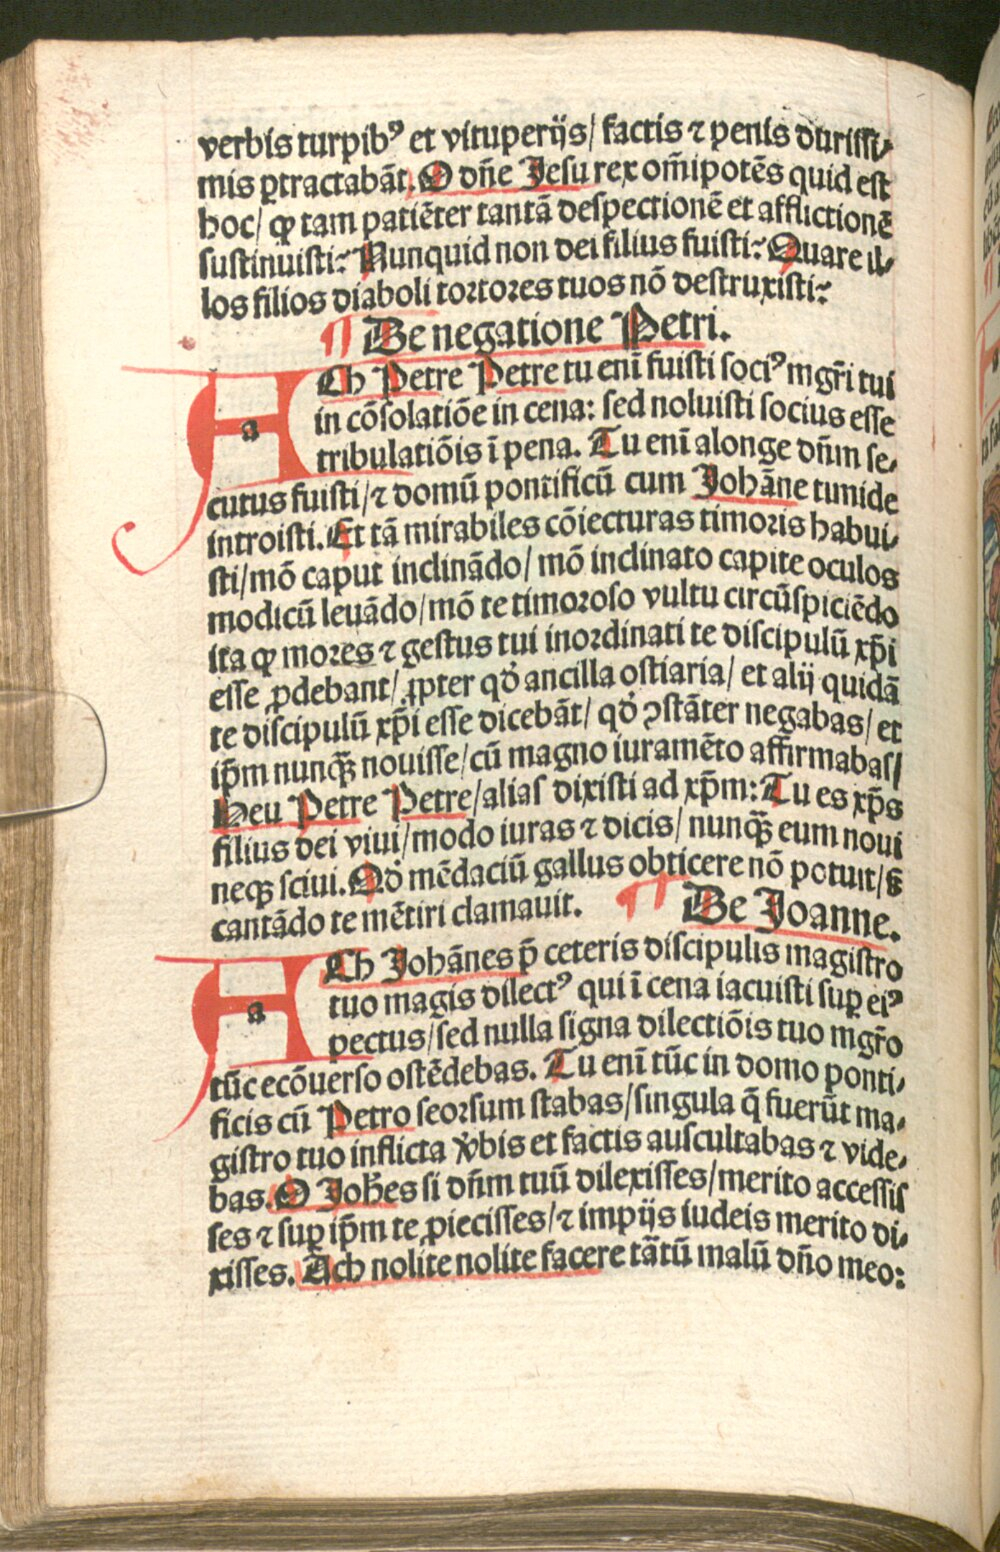 verbis turpibꝰ et vituperijs/ factis ⁊ penis durissi⸗
mis ꝑtractabāt. O dn̄e Jesu rex om̄ipotēs quid est
hoc/ ꝙ tam patiēter tantā despectionē et afflictionē
sustinuisti? Nunquid non dei filius fuisti? Quare il⸗
los filios diaboli tortores tuos nō destruxisti?
¶ De negatione Petri.
aCh Petre Petre tu enī fuisti sociꝰ mgr̄i tui
in cōsolatiōe in cena: sed noluisti socius esse
tribulatiōis ī pena. Tu enī alonge dn̄m se⸗
cutus fuisti/ ⁊ domū pontificū cum Johāne timide
introisti. Et tā mirabiles cōiecturas timoris habui⸗
sti/ mō caput inclinādo/ mō inclinato capite oculos
modicū leuādo/ mō te timoroso vultu circūspiciēdo
ita ꝙ mores ⁊ gestus tui inordinati te discipulū xp̄i
esse ꝓdebant/ ꝓpter qd̓ ancilla ostiaria/ et alij quidā
te discipulū xp̄i esse dicebāt/ qd̓ ꝯstāter negabas/ et
ip̄m nunqꝫ nouisse/ cū magno iuramēto affirmabas/
Heu Petre Petre/ alias dixisti ad xp̄m: Tu es xp̄s
filius dei viui/ modo iuras ⁊ dicis/ nunqꝫ eum noui
neqꝫ sciui. Qd̓ mēdaciū gallus obticere nō potuit/ s̄
cantādo te mētiri clamauit. ¶ De Joanne.
aCh Johānes p̄ ceteris discipulis magistro
tuo magis dilectꝰ qui ī cena iacuisti suꝑ eiꝰ
pectus/ sed nulla signa dilectiōis tuo mgr̄o
tūc ecōuerso ostēdebas. Tu enī tūc in domo ponti⸗
ficis cū Petro seorsum stabas/ singula q̄ fuerūt ma⸗
gistro tuo inflicta v̓bis et factis auscultabas ⁊ vide⸗
bas. O Joh̄es si dn̄m tuū dilexisses/ merito accessis
ses ⁊ suꝑ ip̄m te ꝓiecisses/ ⁊ impijs iudeis merito di⸗
xisses. Ach nolite nolite facere tātū malū dn̄o meo: